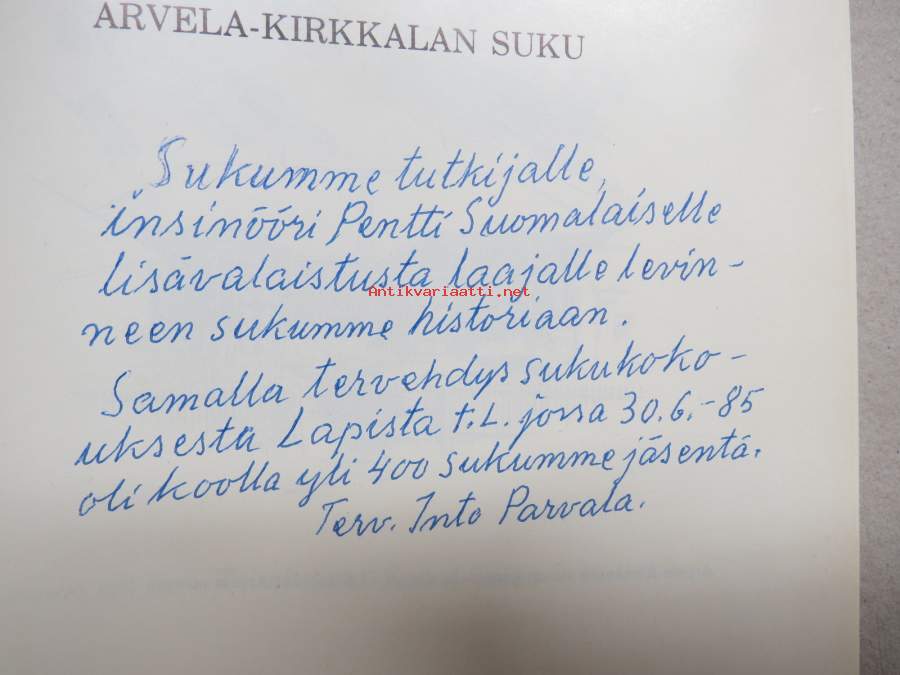 ARVELA-KIRKKALAN SUKU
„Sukumme tutkijalle,
insinööri Pentti Suomalaiselle
lisävalaistusta laajalle levin-
Antikvariaatti.net
neen sukumme historiaan.
Samalla tervehdys sukukoko-
uksesta Lapista t.L. jossa 30.6.-85
oli koolla yli 400 sukumme jäsentä.
Terv. Into Parvala.